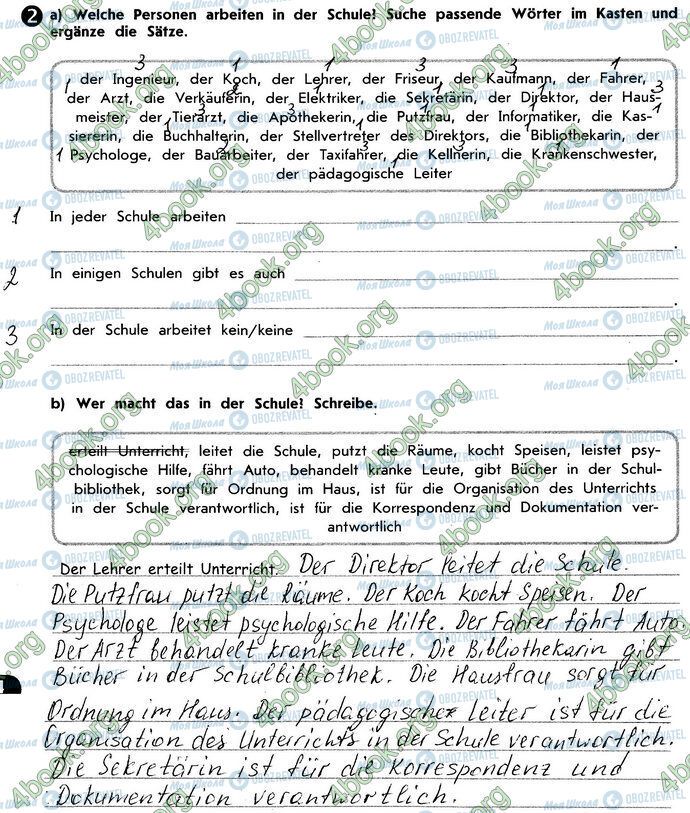 2 a) Welche Personen arbeiten in der Schule? Suche passende Wörter im Kasten und
ergänze die Sätze.
3 1 1 3 3 1
1 der Ingenieur, der Koch, der Lehrer, der Friseur, der Kaufmann, der Fahrer,
der Arzt, die Verkäuferin, der Elektriker, die Sekretärin, der Direktor, der Haus-
meister, der Tierarzt, die Apothekerin, die Putzfrau, der Informatiker, die Kas-
siererin, die Buchhalterin, der Stellvertreter des Direktors, die Bibliothekarin, der
1 Psychologe, der Bauarbeiter, der Taxifahrer, die Kellnerin, die Krankenschwester,
der pädagogische Leiter
1 In jeder Schule arbeiten
2 In einigen Schulen gibt es auch
3 In der Schule arbeitet kein/keine
b) Wer macht das in der Schule? Schreibe.
erteilt Unterricht, leitet die Schule, putzt die Räume, kocht Speisen, leistet psy-
chologische Hilfe, fährt Auto, behandelt kranke Leute, gibt Bücher in der Schul-
bibliothek, sorgt für Ordnung im Haus, ist für die Organisation des Unterrichts
in der Schule verantwortlich, ist für die Korrespondenz und Dokumentation ver-
antwortlich
Der Lehrer erteilt Unterricht. Der Direktor leitet die Schule.
Die Putzfrau putzt die Räume. Der Koch kocht Speisen. Der
Psychologe leistet psychologische Hilfe. Der Fahrer fährt Auto.
Der Arzt behandelt kranke Leute. Die Bibliothekarin gibt
Bücher in der Schulbibliothek. Die Hausfrau sorgt für
Ordnung im Haus. Der pädagogische Leiter ist für die
Organisation des Unterrichts in der Schule verantwortlich.
Die Sekretärin ist für die Korrespondenz und
Dokumentation verantwortlich.
4book.org
Моя Школа OBOZREVATEL